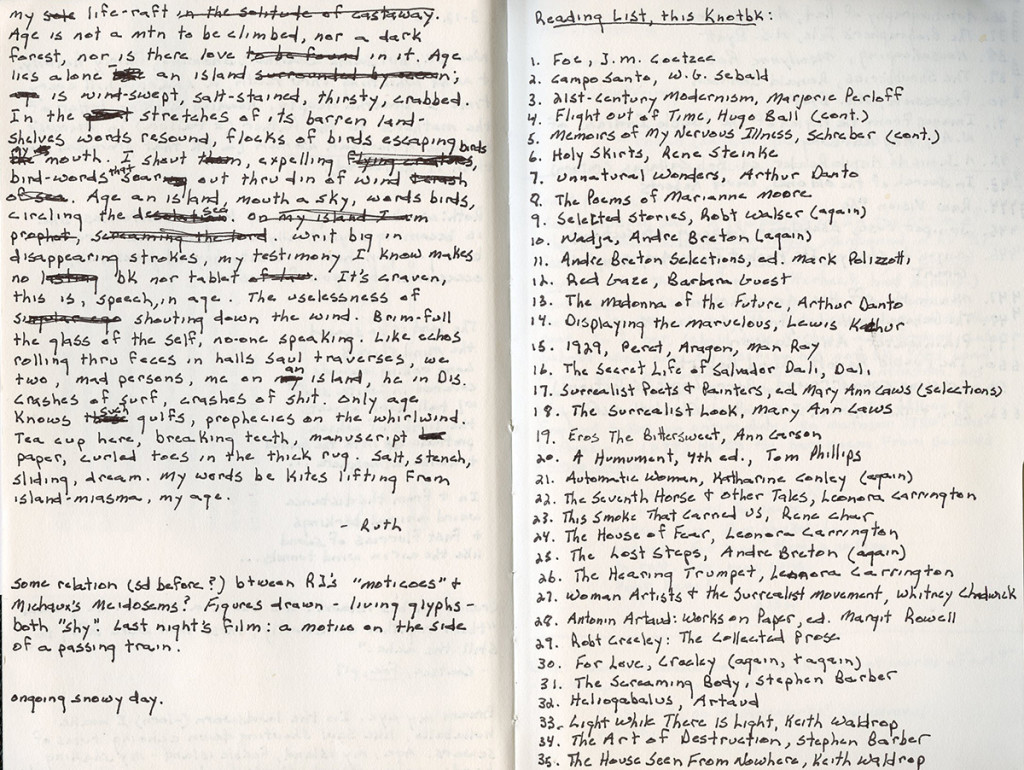 my sole life-raft in the solitude of castaway.
Age is not a mtn to be climbed, nor a dark
forest, nor is there love to be found in it. Age
lies alone an island surrounded by ocean;
is wind-swept, salt-stained, thirsty, crabbed.
In the stretches of its barren land-
shelves words resound, flocks of birds escaping birds
my mouth. I shout them, expelling flying creatures,
bird-words that soar out thru din of wind thrash
of sea. Age an island, mouth a sky, words birds,
circling the desolate sea. on my island I am
prophet, screaming the lord. Writ big in
disappearing strokes, my testimony I know makes
no lasting bk nor tablet of law. It's craven,
this is, speech, in age. The uselessness of
shouting down the wind. Brim-full
the glass of the self, no-one speaking. Like echos
rolling thru feces in halls Saul traverses, we
two, mad persons, me on my an island, he in Dis.
Crashes of surf, crashes of shit. Only age
knows such gulfs, prophecies on the whirlwind.
Tea cup here, breaking teeth, manuscript
paper, curled toes in the thick rug. Salt, stench,
sliding, dream. My words be kites lifting from
island-miasma, my age.
- Ruth
Some relation (sd before?) btween RJ's "moticoes" +
Michaux's Meidosems? Figures drawn - living glyphs -
both "shy". Last night's film: a motico on the side
of a passing train.
ongoing snowy day.
Reading List, this Knotbk:
1. Foe, J.M. Coetzee
2. Campo Santo, W.G. Sebald
3. 21st-Century Modernism, Marjorie Perloff
4. Flight Out of Time, Hugo Ball (cont.)
5. Memoirs of My Nervous Illness, Schreber (cont.)
6. Holy Skirts, Rene Steinke
7. Unnatural Wonders, Arthur Danto
8. The Poems of Marianne Moore
9. Selected Stories, Robt Walser (again)
10. Nadja, Andre Breton (again)
11. Andre Breton Selections, ed. Mark Polizzoti
12. Red Gaze, Barbara Guest
13. The Madonna of the Future, Arthur Danto
14. Displaying the marvelous, Lewis Kachur
15. 1929, Peret, Aragon, Man Ray
16. The Secret Life of Salvador Dali, Dali
17. Surrealist Poets & Painters, ed. Mary Ann Caws (selections)
18. The Surrealist Look, Mary Ann Caws
19. Eros The Bittersweet, Ann Carson
20. A Humument, 4th ed., Tom Phillips
21. Automatic Woman, Katharine Conley (again)
22. The Seventh Horse & Other Tales, Leonora Carrington
23. This Smoke That Carried Us, Rene Char
24. The House of Fear, Leonora Carrington
25. The Lost Steps, Andre Breton (again)
26. The Hearing Trumpet, Leonora Carrington
27. Woman Artists & the Surrealist Movement, Whitney Chadwick
28. Antonin Artaud: Works on Paper, ed. Margit Rowell
29. Robt Creeley: The Collected Prose
30. For Love, Creeley (again, + again)
31. The Screaming Body, Stephen Barber
32. Heliogabalus, Artaud
33. Light While There is Light, Keith Waldrop
34. The Art of Destruction, Stephen Barber
35. The House Seen From Nowhere, Keith Waldrop